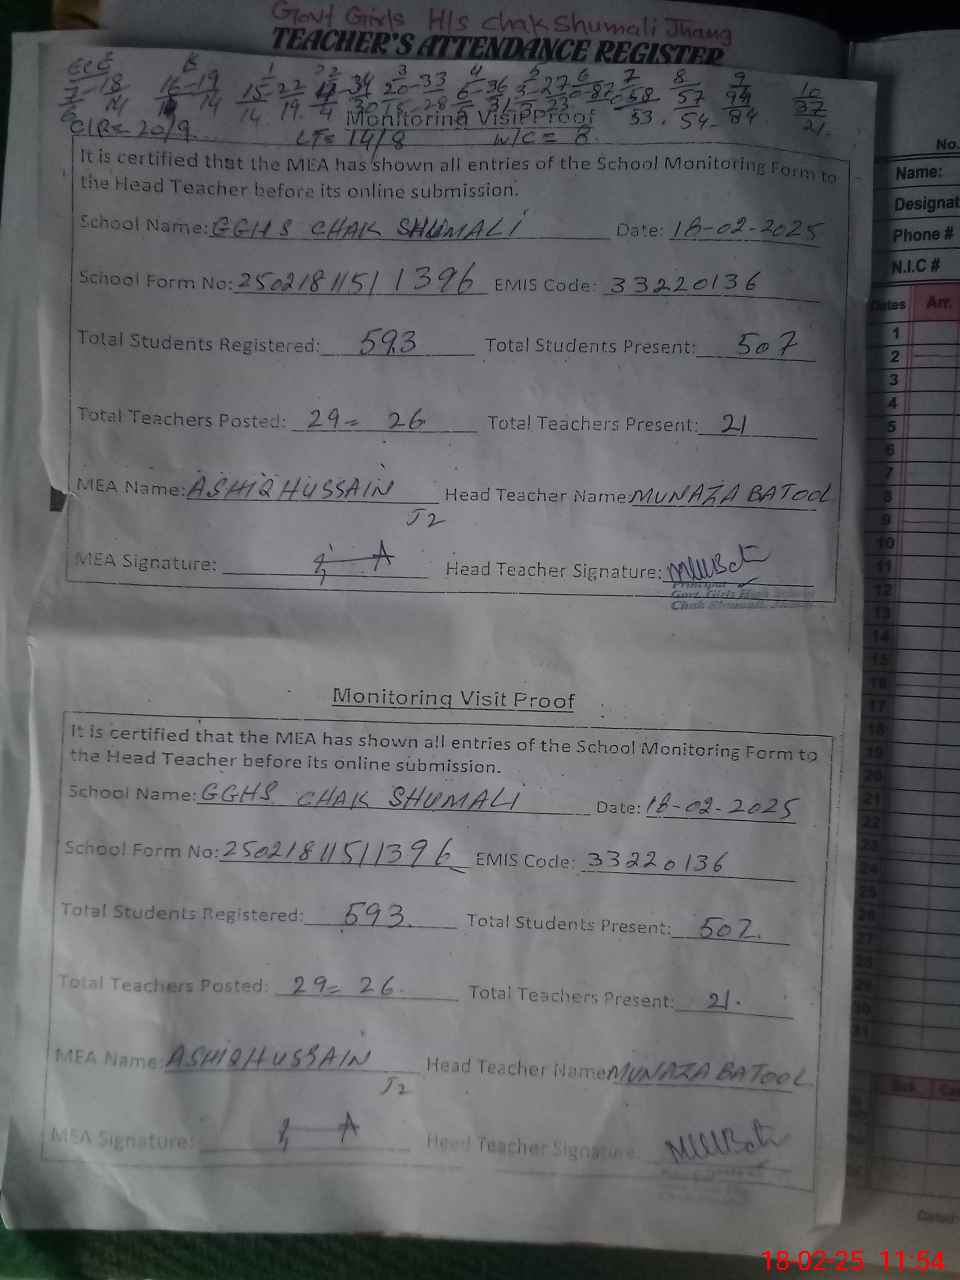 Govt Girls H/s chak Shumali Jhang
TEACHER'S ATTENDANCE REGISTER
ECE
1 2 3 4 5 6 7 8 9 10
16-19 15-22 34 20-33 36 27 58 57 37
14 14 19 28 31 23 53. 54- 84. 21
CLR= 20/9. LT= 14/8 W/C = 8
Monitoring Visit Proof
It is certified that the MEA has shown all entries of the School Monitoring Form to
the Head Teacher before its online submission.
School Name: GGHS CHAK SHUMALI Date: 18-02-2025
School Form No: 25021811511396 EMIS Code: 33220136
Total Students Registered: 593 Total Students Present: 507
Total Teachers Posted: 29= 26 Total Teachers Present: 21
MEA Name: ASHIQ HUSSAIN Head Teacher Name MUNAZA BATOOL
J2
MEA Signature: Head Teacher Signature:
Principal
Govt. Girls High School
Chak Shumali, Jhang
Monitoring Visit Proof
It is certified that the MEA has shown all entries of the School Monitoring Form to
the Head Teacher before its online submission.
School Name: GGHS CHAK SHUMALI Date: 18-02-2025
School Form No: 25021811511396 EMIS Code: 33220136
Total Students Registered: 593. Total Students Present: 507.
Total Teachers Posted: 29= 26. Total Teachers Present: 21.
MEA Name: ASHIQ HUSSAIN Head Teacher Name MUNAZA BATOOL
J2
MEA Signature: Head Teacher Signature:
No.
Name:
Designat
Phone #
N.I.C #
Dates Arr.
1
2
3
4
5
6
7
8
9
10
11
12
13
14
15
16
17
18
19
20
21
22
23
24
25
26
27
28
29
30
31
Sick Cas
Dated
18-02-25 11:54